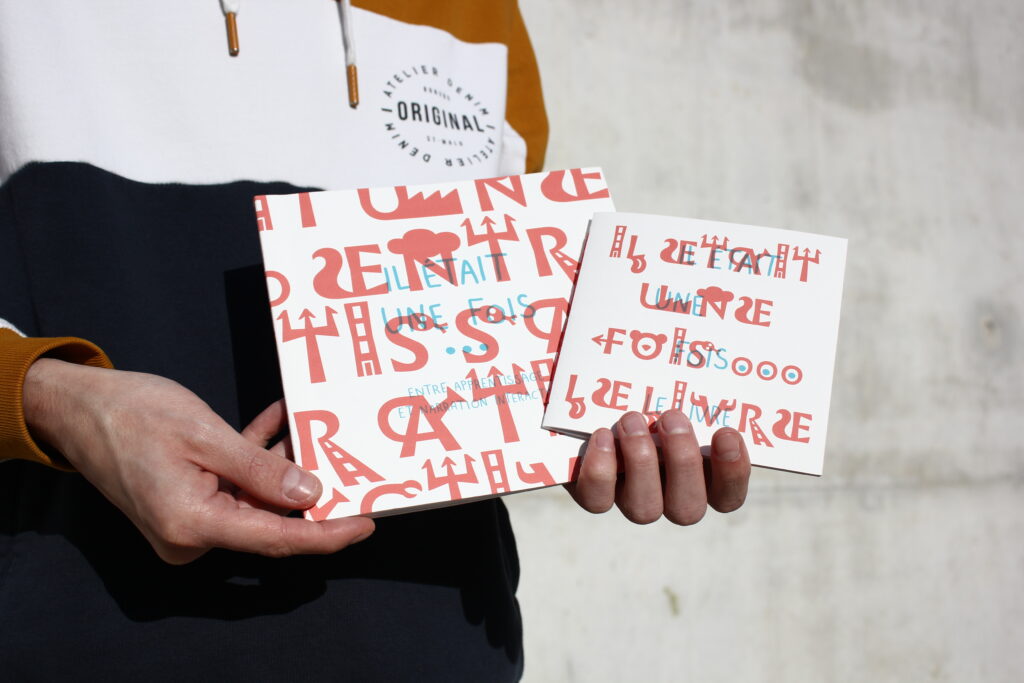 ATELIER DENIM
ORIGINAL
ST-MALO
ATELIER DENIM
T UNE
ENTR
TISS
RAT
IL ÉTAIT
UNE FOIS
...
ENTRE APPRENTISSAGE
ET NARRATION
IL ETAIT
UNE
FOIS...
LE LIVRE
IL ÉTAIT
UNE
FOIS
LE LIVRE